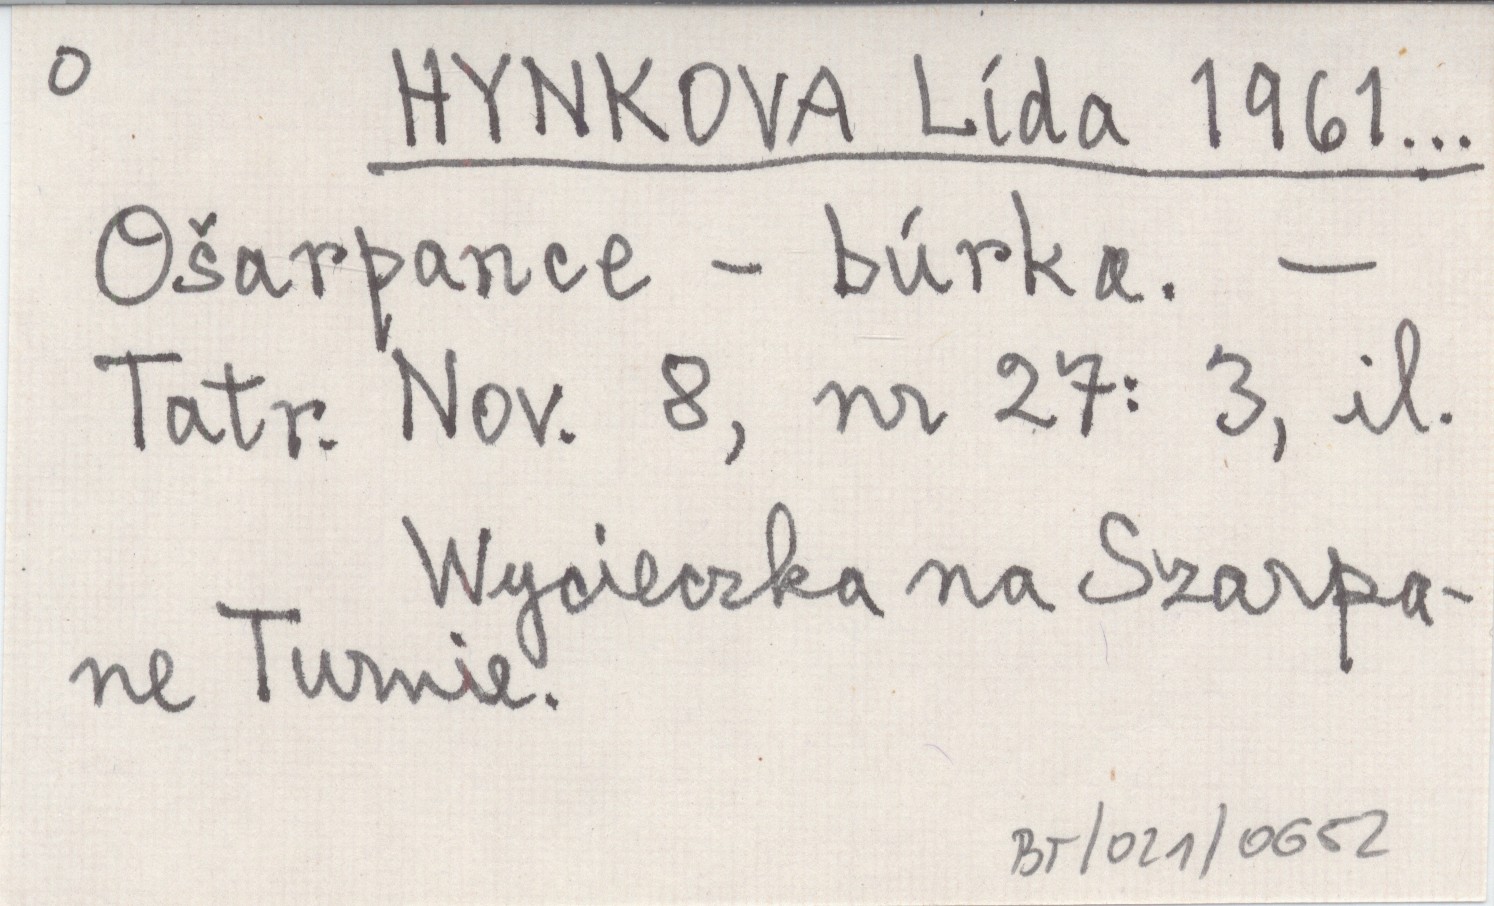 O HYNKOVA Lída 1961...
Ošarpance - búrka. —
Tatr. Nov. 8, nr 27: 3, il.
Wycieczka na Szarpa-
ne Turnie.
BT/021/0652